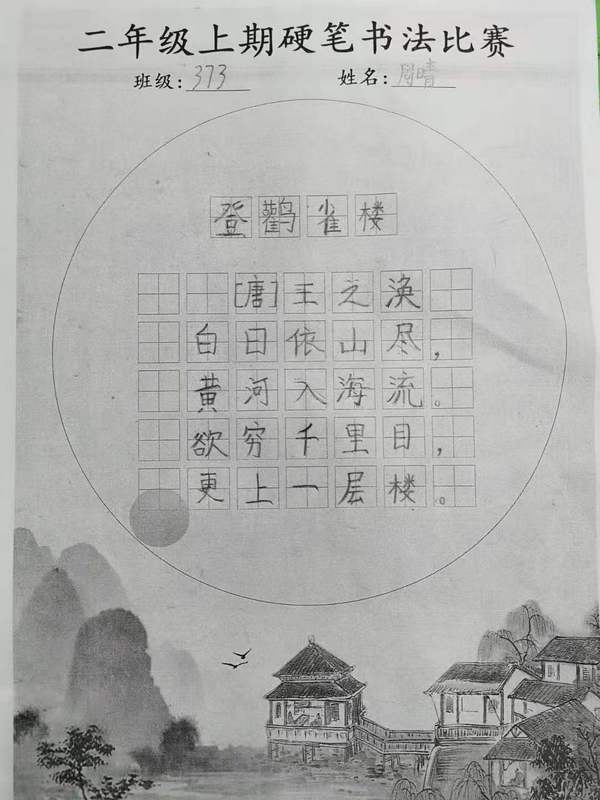 二年级上期硬笔书法比赛
班级：373 姓名：周晴
登鹳雀楼
[唐]王之涣
白日依山尽，
黄河入海流。
欲穷千里目，
更上一层楼。